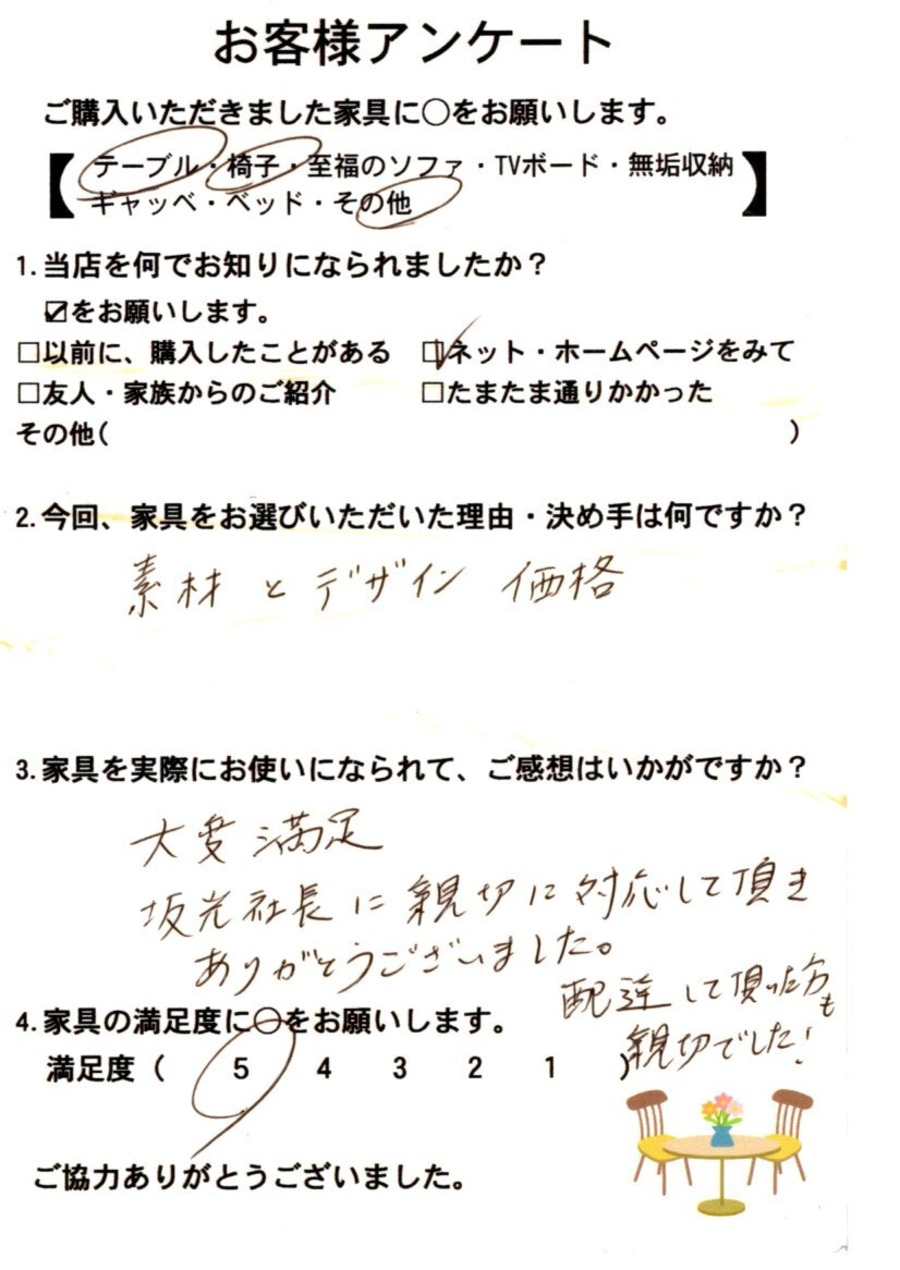 お客様アンケート
ご購入いただきました家具に〇をお願いします。
【テーブル・椅子・至福のソファ・TVボード・無垢収納
ギャッベ・ベッド・その他】
1.当店を何でお知りになられましたか？
☑をお願いします。
□以前に、購入したことがある ☑ネット・ホームページをみて
□友人・家族からのご紹介 □たまたま通りかかった
その他( )
2.今回、家具をお選びいただいた理由・決め手は何ですか？
素材とデザイン 価格
3.家具を実際にお使いになられて、ご感想はいかがですか？
大変満足
坂光社長に親切に対応して頂き
ありがとうございました。
配達して頂いた方も
親切でした!
4.家具の満足度に〇をお願いします。
満足度( 5 4 3 2 1 )
ご協力ありがとうございました。